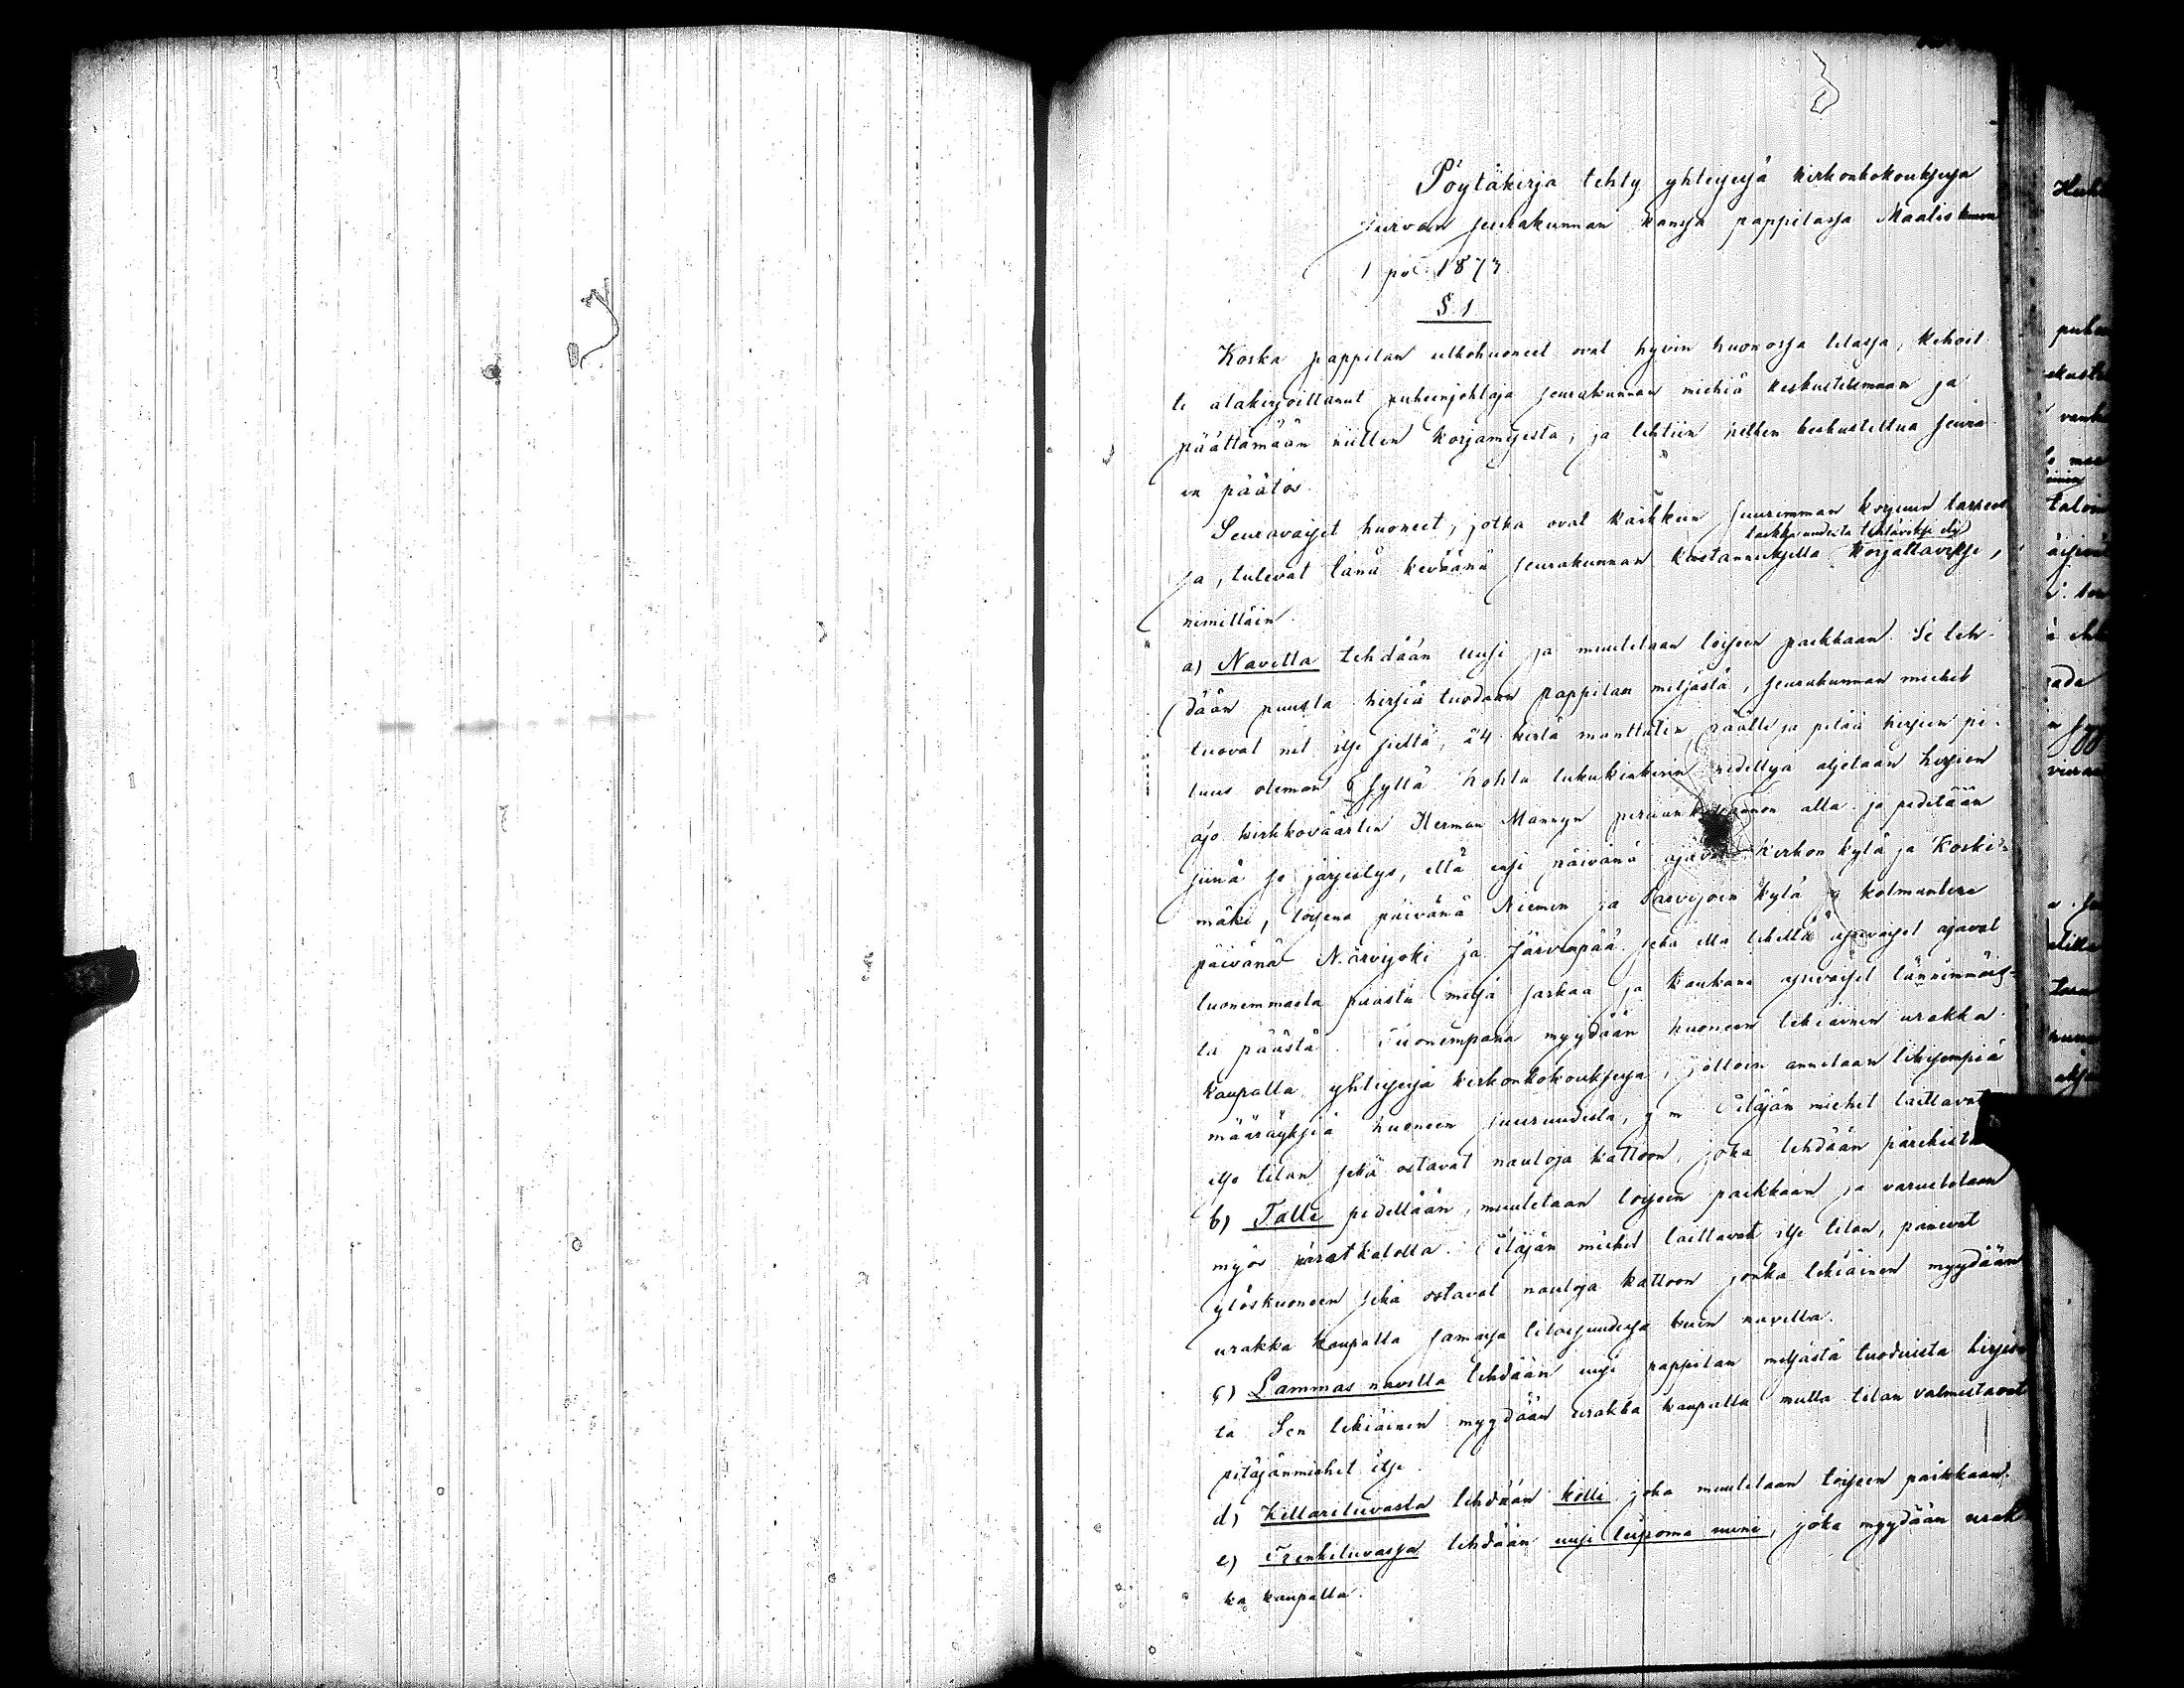 Pöytäkirja tehty yhteisesjä kirkonkokouksesja
Jurvan seurakunnan kansja pappilasja Maaliskuun
1 pä: 1873
§. 1
Koska pappilan ulkohuoneet ovat hyvin huonosja tilasja, kehoit
ti alakirjoittanut puheenjohtaja seurakunnan miehiä keskustelemaan ja
päättämään niitten korjamisesta, ja tehtiin sitten keskusteltua seura
va päätös.
Seuravaiset huoneet, jotka ovat kaikkein suuremman korjuun tarpees
sa, tulevat tänä keväänä seurakunnan kustannuksella korjattaviksi,
taikka uudesta tehtäviksi
nimittäin.
a) Navetta tehdään uusi ja muutetaan toiseen paikkaan. Se teh-
dään puusta hirsiä tuodaan pappilan metsästä, seurakunnan miehet
tuovat net itse sieltä, 24 hirtä manttalin päälle ja pitää hirsien pi-
tuus oleman 6 syltä Kohta lukukinkerin pidettyä aljetaan hirsien
ajo kirkkoväärtin Herman Mannyn alla ja pidetään
siinä se järjestys, että ensi päivänä ajavat Kirkon kylä ja Koski-
mäki, toisena päivänä Niemen ja Sarvijoen kylä ja kolmantena
päivänä Närvijoki ja Järvenpää sekä että lähellä asuvaiset ajavat
luonemmasta päästä metsä sarkaa ja kaukana asuvaiset lännimmäis-
tä päästä. Tuonempana myydään huoneen tekiäinen urakka
kaupalla yhteisesjä kirkonkokouksesja, jolloin annetaan likisempiä
määräyksiä huoneen suuruudesta, y m Pitäjän miehet laittavat
itse tilan sekä ostavat nauloja kattoon, joka tehdään päreistä
b) Talli pidetään, muutetaan toiseen paikkaan ja varustetaan
myös päratkatolla. Pitäjän miehet laittavat itse tilan, panevat
ylös huoneen sekä ostavat nauloja kattoon jonka tekiäinen myydään
urakka kaupalla samaisa tilaisuudesja kuin navetta.
c) Lammas navetta tehdään uusi pappilan metsästä tuoduista hirsis
tä Sen tekiäinen myydään urakka kaupalla mutta tilan valmistavat
pitäjänmiehet itse.
d) Kellarituvasta tehdään kölli joka muutetaan toiseen paikkaan.
e) Trenkituvasja tehdään uusi leipoma uuni, joka myydään urak
ka kaupalla.